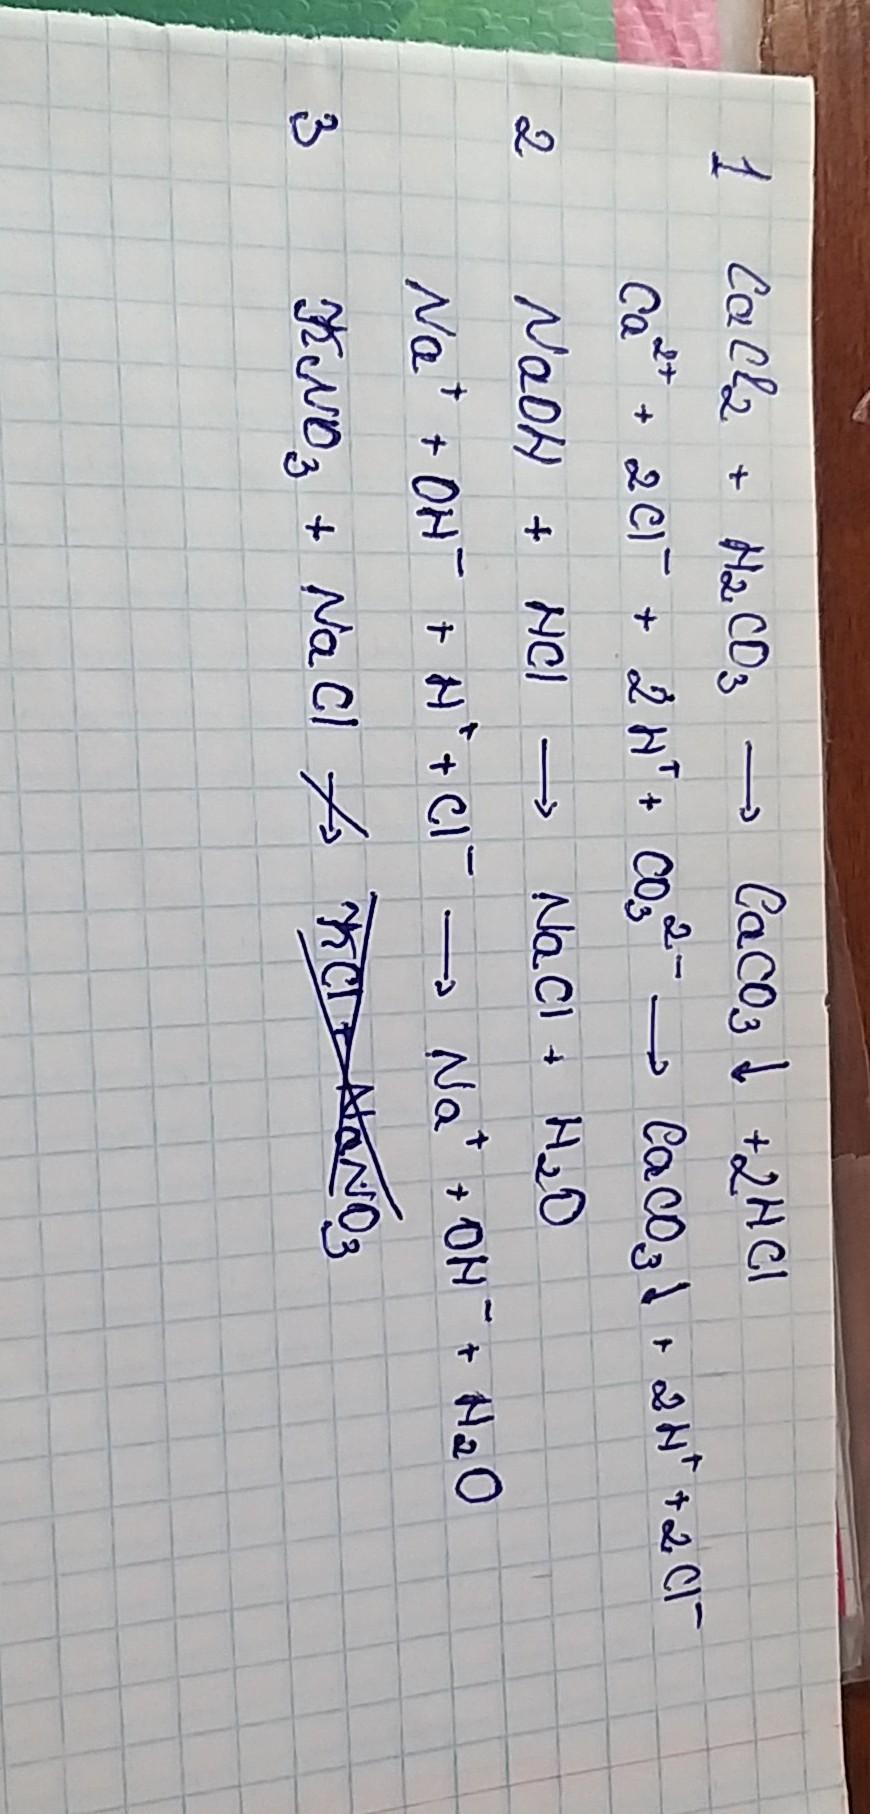 1 CaCl₂ + H₂CO₃ → CaCO₃↓ + 2HCl
Ca²⁺ + 2Cl⁻ + 2H⁺ + CO₃²⁻ → CaCO₃↓ + 2H⁺ + 2Cl⁻
2 NaOH + HCl → NaCl + H₂O
Na⁺ + OH⁻ + H⁺ + Cl⁻ → Na⁺ + OH⁻ + H₂O
3 KNO₃ + NaCl ↛ KCl + NaNO₃